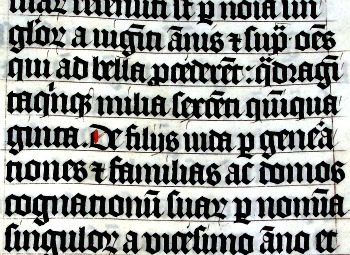 suaꝝ recensiti sūt ꝑ noīa sin
guloꝝ a vigīti ānis ⁊ sup̄ oēs
qui ad bella ꝓcederēt: q̈dragī
taq̇nqꝫ milia sexcēti quīqua
ginta. De filijs iuda ꝑ gene᷑a
tiones ⁊ familias ac domos
cognationū suaꝝ ꝑ nomīa
singuloꝝ a vicesimo āno et